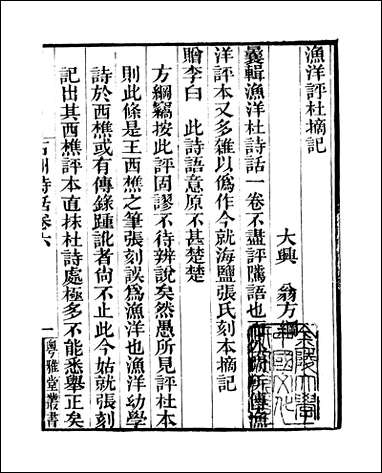 漁洋評杜摘記
大興 翁方綱
曩輯漁洋杜詩話一卷不盡評隲語也
洋評本又多雜以偽作今就海鹽張氏刻本摘記
贈李白 此詩語意原不甚楚楚
方綱竊按此評固謬不待辨說矣然愚所見評杜本
則此條是王西樵之筆張刻誤為漁洋也漁洋幼學
詩於西樵或有傳錄踵訛者尚不止此今姑就張刻
記出其西樵評本直抹杜詩處極多不能悉舉正矣
石洲詩話卷六
一
粵雅堂叢書